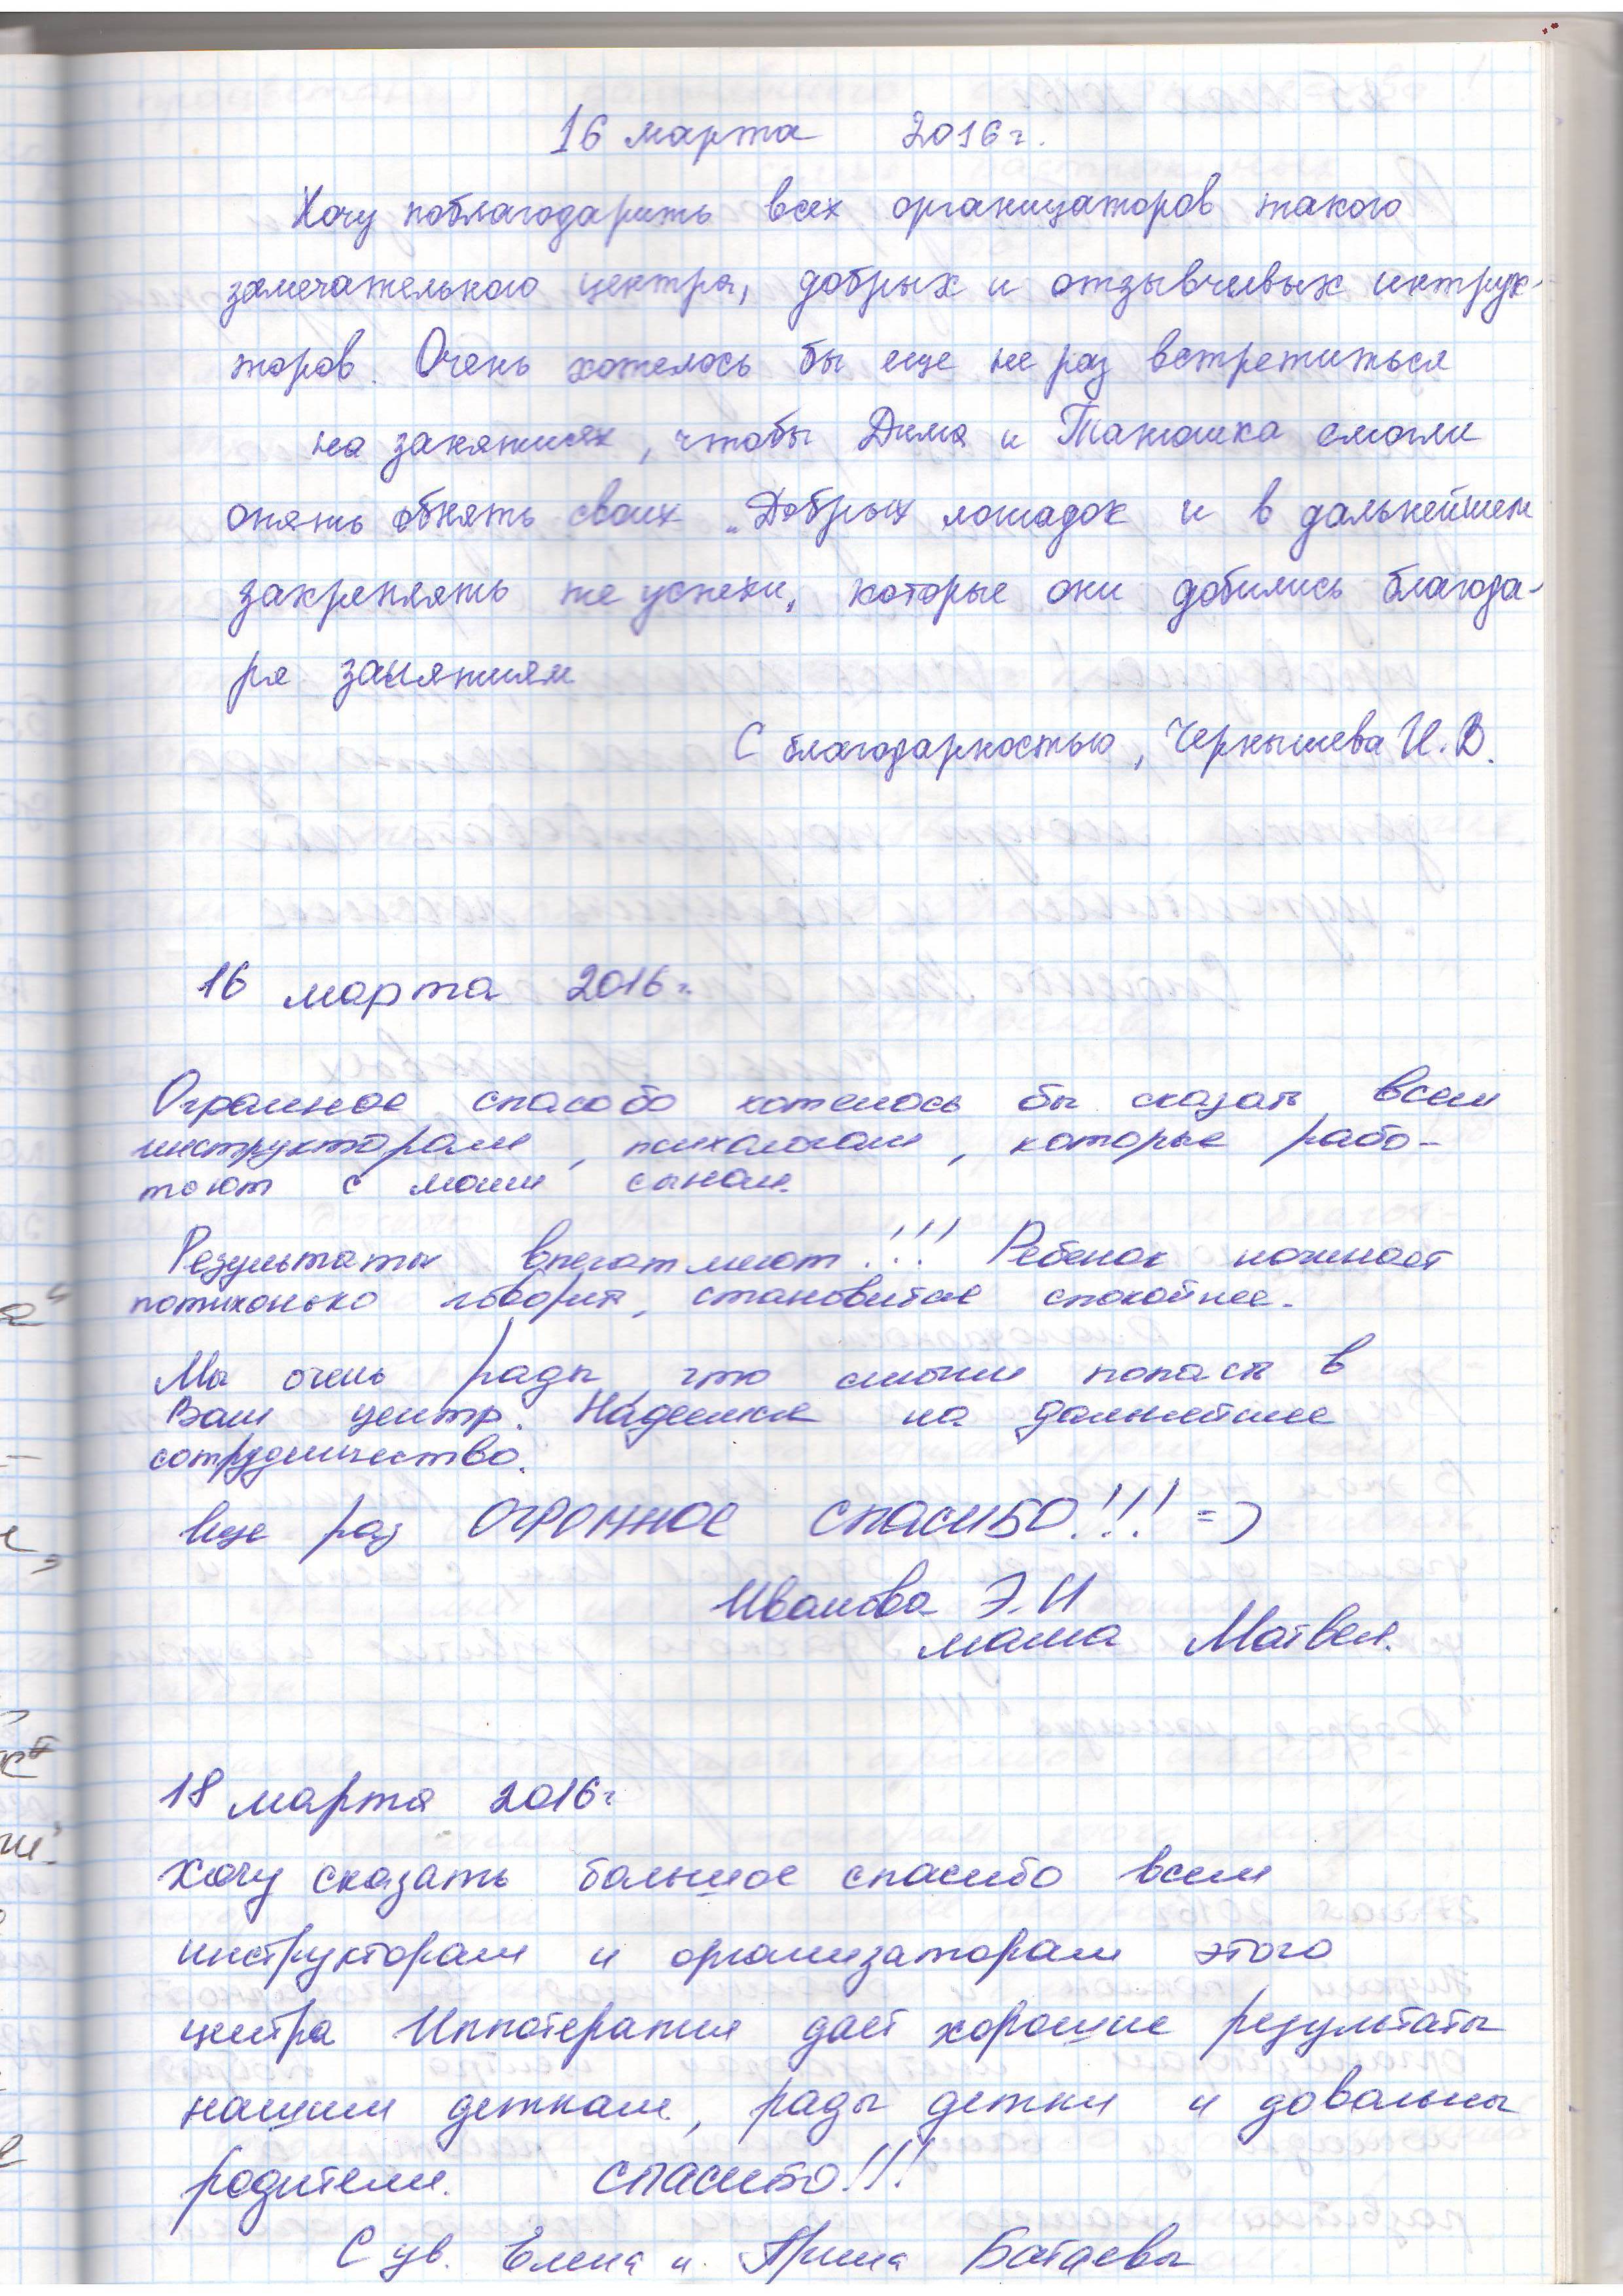 16 марта 2016г.
Хочу поблагодарить всех организаторов такого
замечательного центра, добрых и отзывчивых интрук-
торов. Очень хотелось бы еще не раз встретиться
на занятиях, чтобы Дима и Танюшка смогли
опять обнять своих „Добрых лошадок и в дальнейшем
закреплять те успехи, которые они добились благода-
ря занятиям
С благодарностью, Чернышева И.В.
16 марта 2016г.
Огромное спасибо хотелось бы сказать всем
инструкторам, психологам, которые рабо-
тают с моим сыном.
Результаты впечатляют!!! Ребенок начинает
потихоньку говорить, становится спокойнее.
Мы очень рады что смогли попасть в
Ваш центр. Надеемся на дальнейшее
сотрудничество.
Еще раз ОГРОМНОЕ СПАСИБО!!! =)
Иванова Э.И
мама Матвея.
18 марта 2016г
Хочу сказать большое спасибо всем
инструкторам и организаторам этого
центра Иппотерапия дает хорошие результаты
нашим деткам, рады детки и довольны
родители. СПАСИБО!!!
С ув. Елена и Арина Батаевы